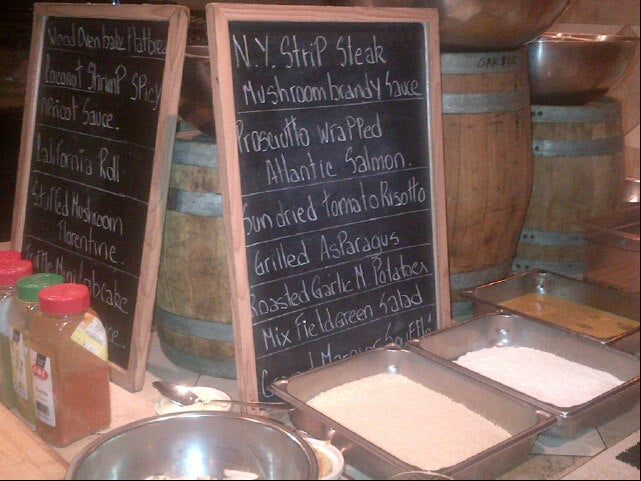 Wood Oven bake Flatbre
Coconut Shrimp Spicy
Apricot Sauce.
California Roll
Stuffed Mushroom
Florentine.
N.Y. Strip Steak
Mushroom brandy Sauce
Prosciutto Wrapped
Atlantic Salmon.
Sun dried tomato Risotto
Grilled Asparagus
Roasted Garlic M. Potatoes
Mix Field Green Salad
OAK